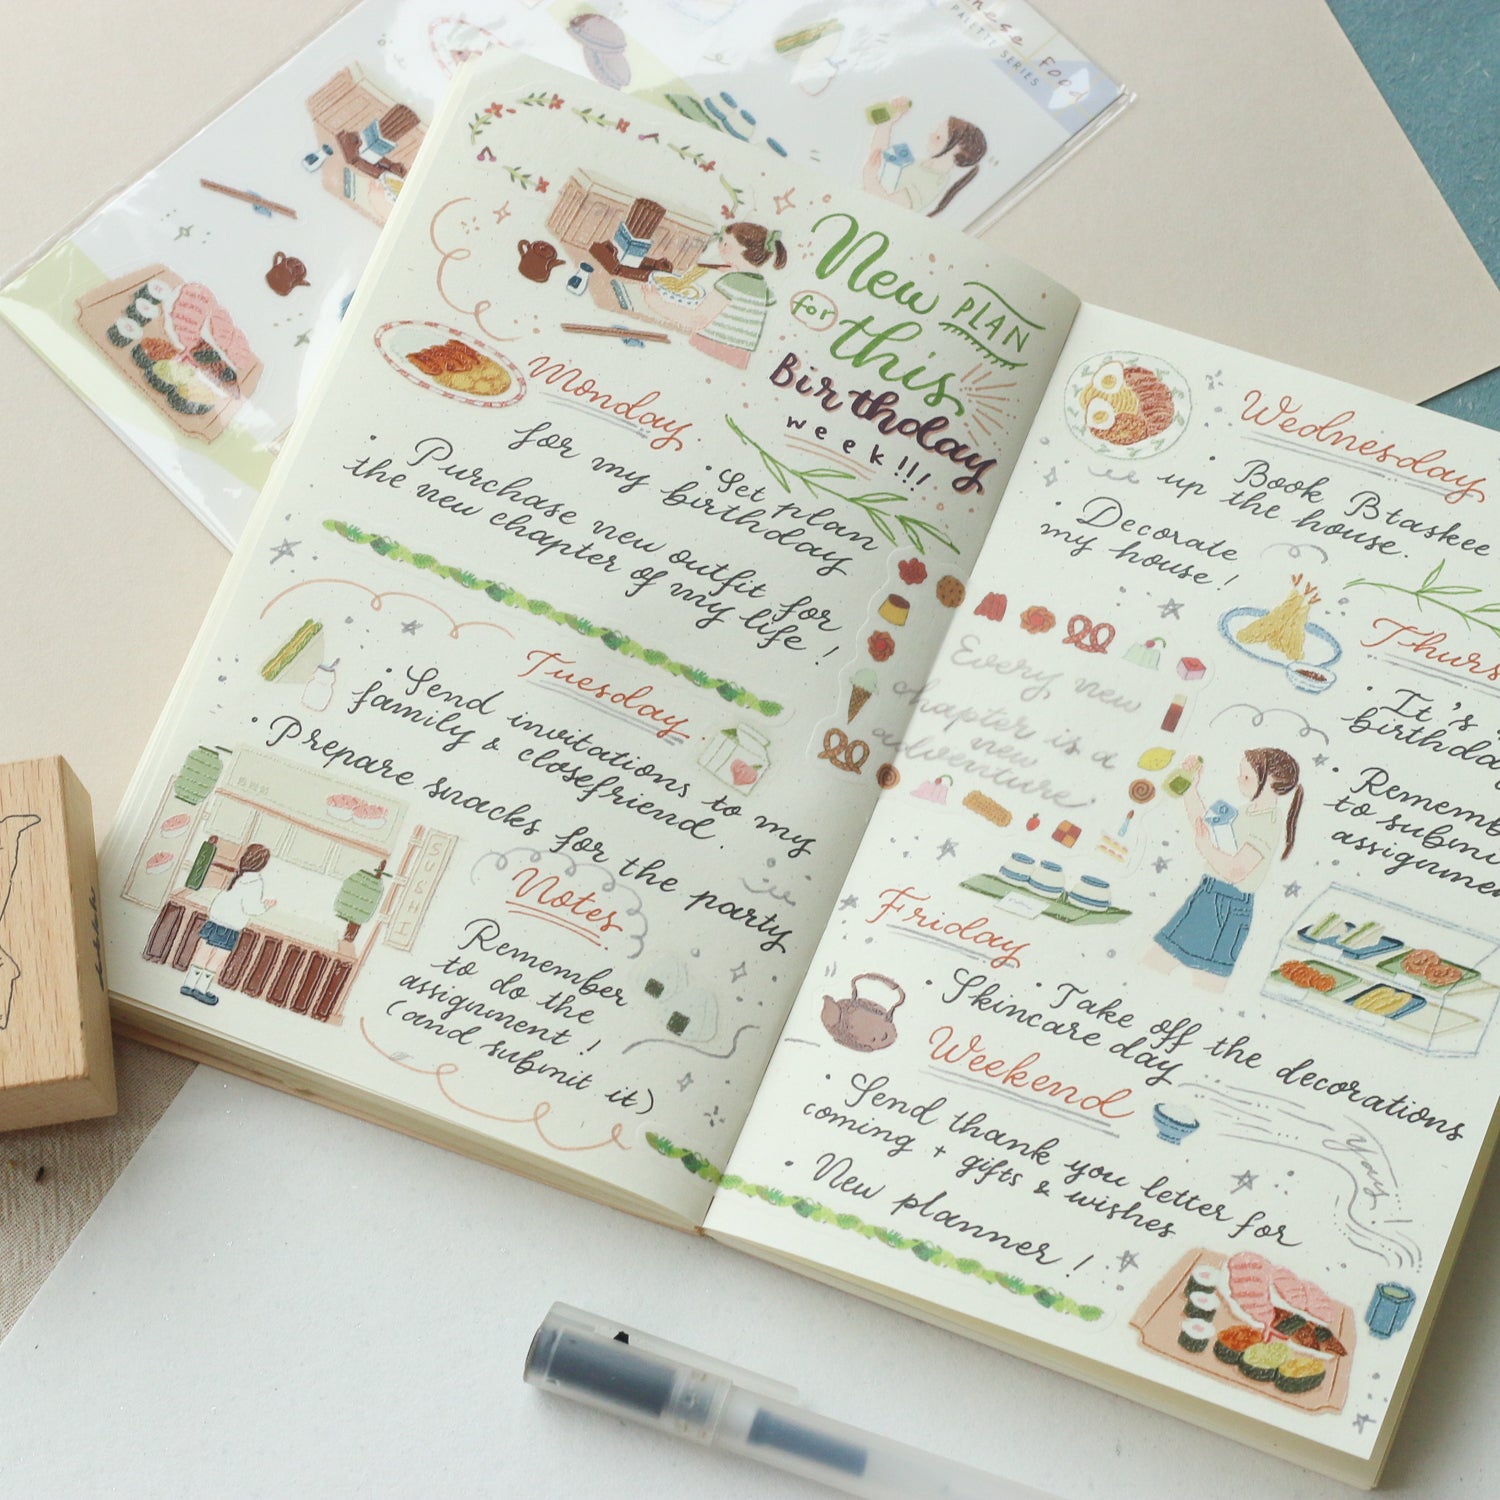 Food
PALETTE SERIES
New PLAN
for this
Birthday
week!!!
Monday
• Set plan
for my birthday
• Purchase new outfit for
the new chapter of my life!
Tuesday
• Send invitations to my
family & closefriend.
• Prepare snacks for the party
SUSHI
Notes
Remember
to do the
assignment!
(and submit it)
Wednesday
• Book Btaskee
up the house.
• Decorate
my house!
Every new
chapter is a
new
adventure
Thurs
• It's
birthday
• Remember
to submit
assignment
Friday
• Take off the decorations
• Skincare day
Weekend
yay!
• Send thank you letter for
coming + gifts & wishes
• New planner!